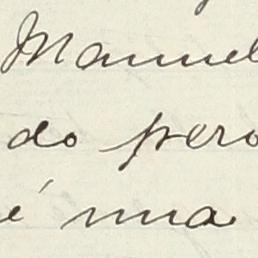 Manuel
do pero
é uma